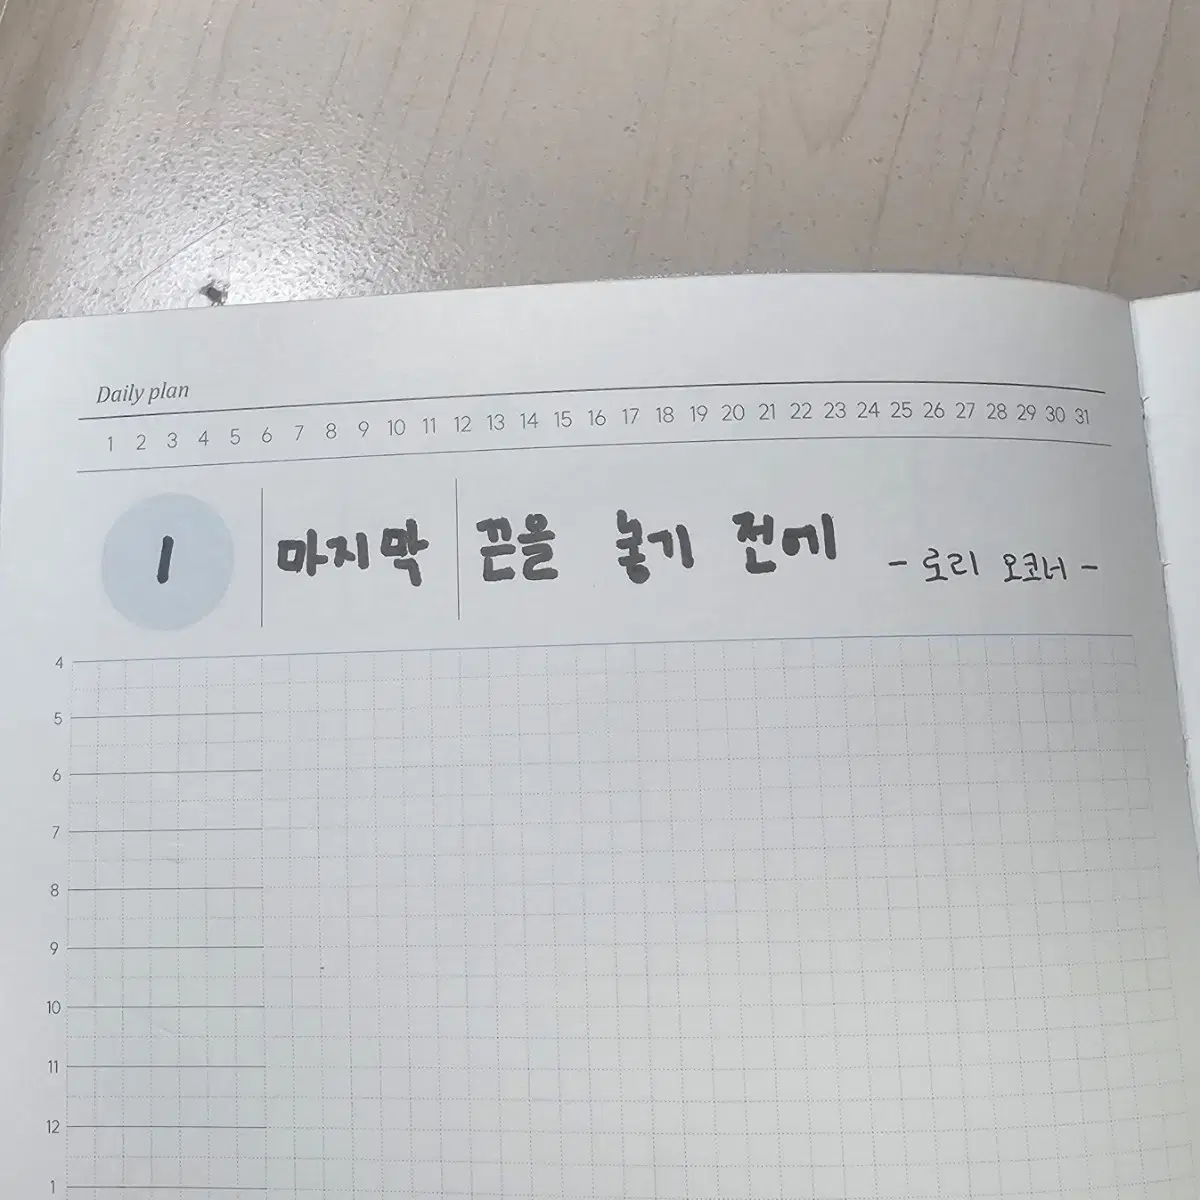 Daily plan
1 2 3 4 5 6 7 8 9 10 11 12 13 14 15 16 17 18 19 20 21 22 23 24 25 26 27 28 29 30 31
1 마지막 끈을 놓기 전에 - 로리 오코너 -
4
5
6
7
8
9
10
11
12
1